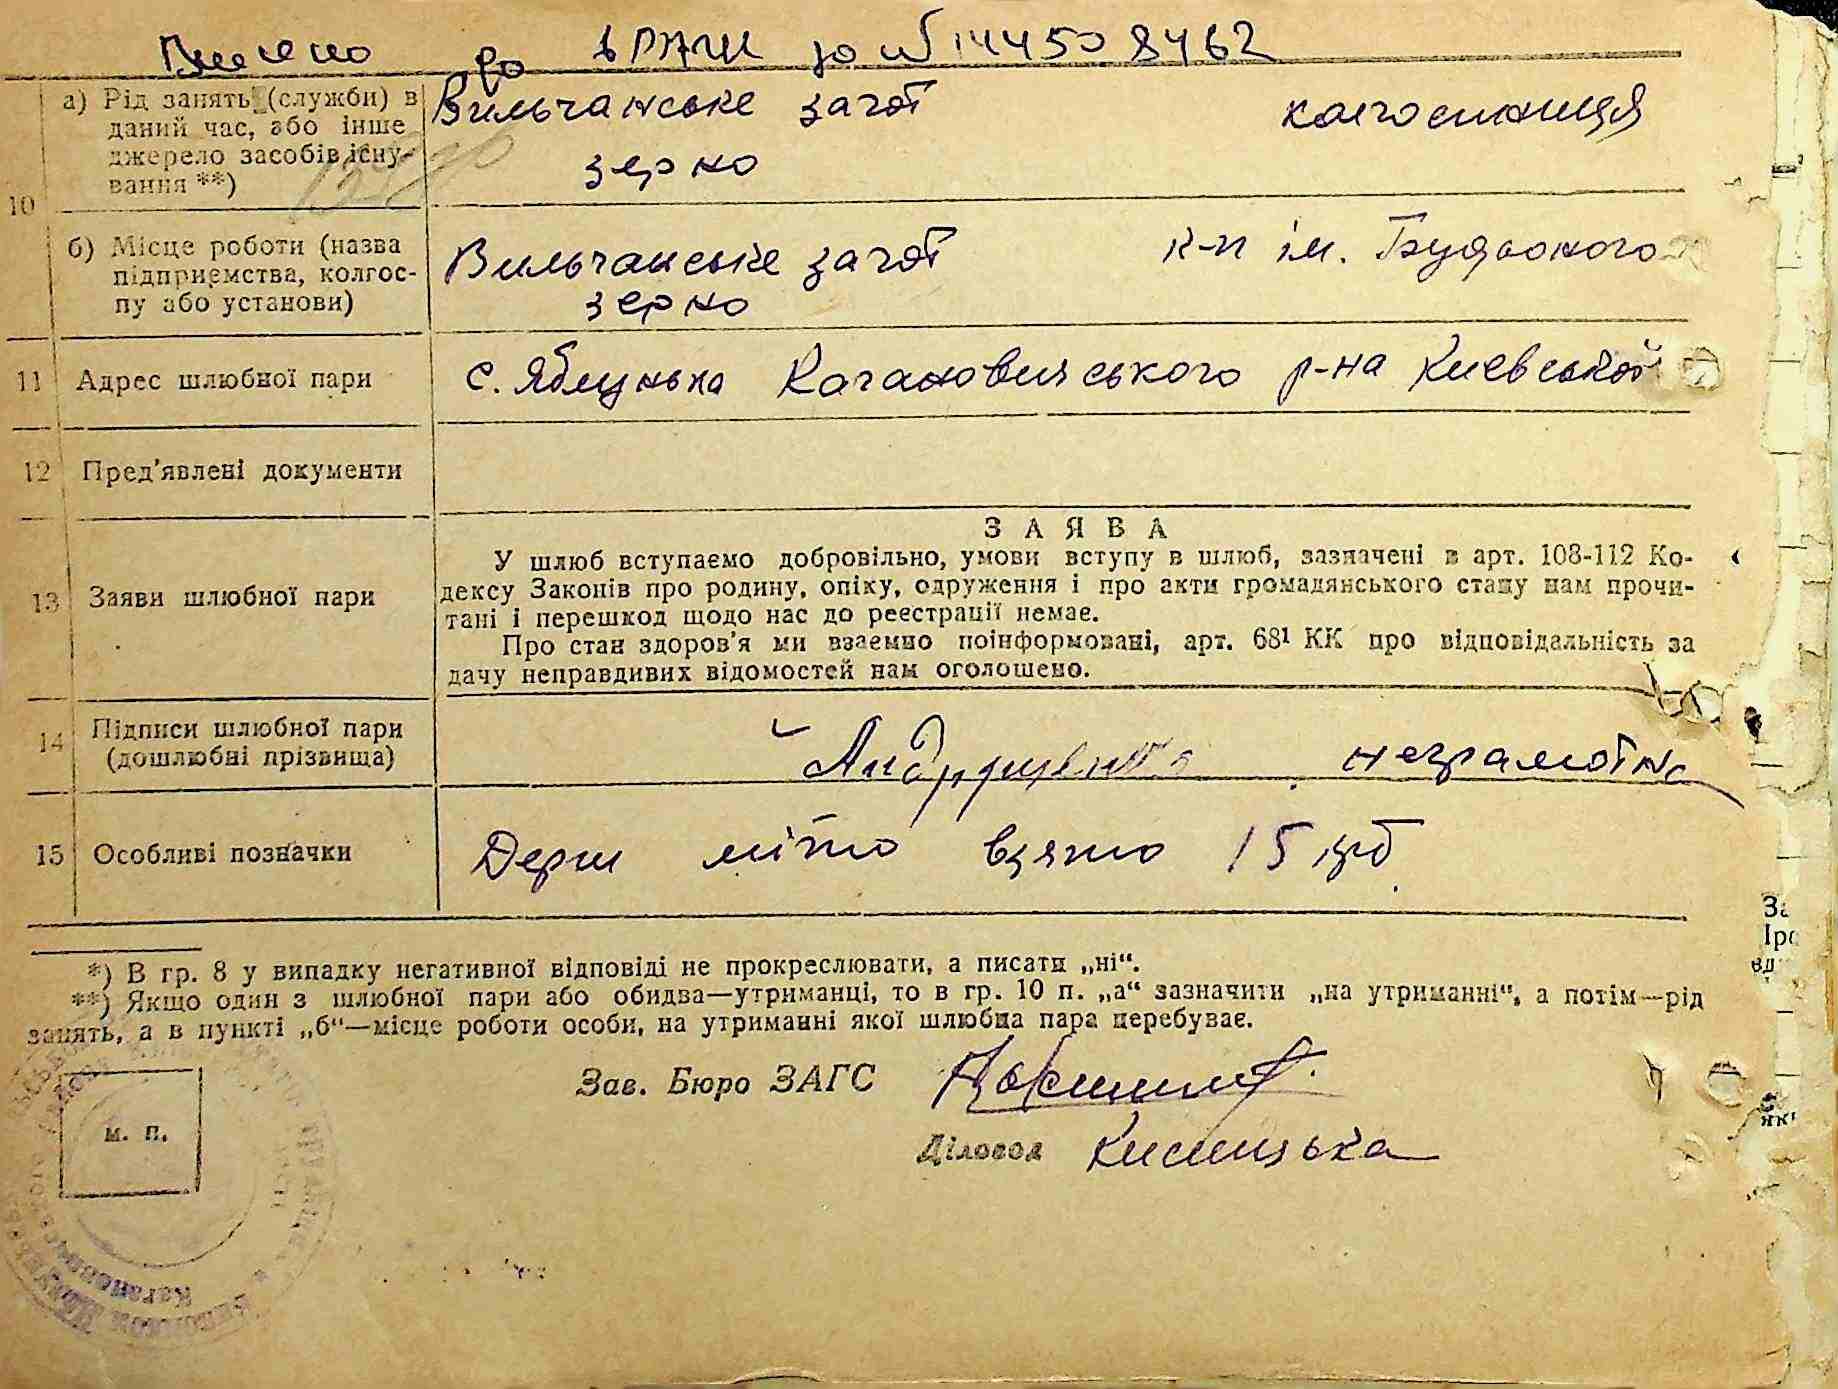 Внесено до ДРАЦС за № 144508462
а) Рід занять (служби) в
даний час, або інше
джерело засобів існу-
вання **)
Вильчанське загот
зерно
колгоспниця
10
б) Місце роботи (назва
підприємства, колгос-
пу або установи)
Вильчанське загот
зерно
к-п ім. Будьоного
11 Адрес шлюбної пари
с. Яблунька Кагановичського р-на Киевської
12 Пред'явлені документи
13 Заяви шлюбної пари
ЗАЯВА
У шлюб вступаємо добровільно, умови вступу в шлюб, зазначені в арт. 108-112 Ко-
дексу Законів про родину, опіку, одруження і про акти громадянського стану нам прочи-
тані і перешкод щодо нас до реєстрації немає.
Про стан здоров'я ми взаємно поінформовані, арт. 68¹ КК про відповідальність за
дачу неправдивих відомостей нам оголошено.
14 Підписи шлюбної пари
(дошлюбні прізвища)
Андрущенко неграмотна
15 Особливі позначки
Держ мито взято 15 крб
*) В гр. 8 у випадку негативної відповіді не прокреслювати, а писати „ні“.
**) Якщо один з шлюбної пари або обидва—утриманці, то в гр. 10 п. „а“ зазначити „на утриманні“, а потім—рід
занять, а в пункті „б“—місце роботи особи, на утриманні якої шлюбна пара перебуває.
Зав. Бюро ЗАГС
Діловод
м. п.